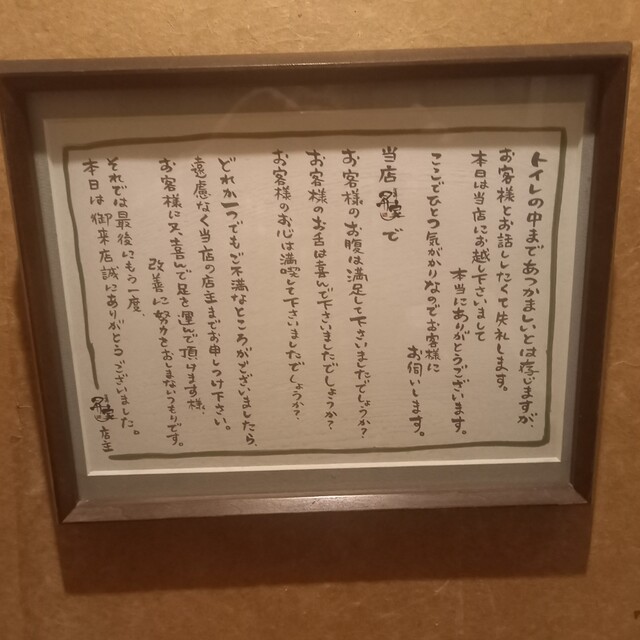 トイレの中まであつかましいとは存じますが、
お客様とお話ししたくて失礼します。
本日は当店にお越し下さいまして
本当にありがとうございます。
ここでひとつ気がかりなのでお客様に
お伺いします。
当店 で
お客様のお腹は満足して下さいましたでしょうか?
お客様のお舌は喜んで下さいましたでしょうか?
お客様のお心は満喫して下さいましたでしょうか?
どれか一つでもご不満なところがございましたら、
遠慮なく当店の店主までお申しつけ下さい。
お客様に又、喜んで足を運んで頂けます様、
改善に努力をおしまないつもりです。
それでは最後にもう一度、
本日は御来店誠にありがとうございました。
店主